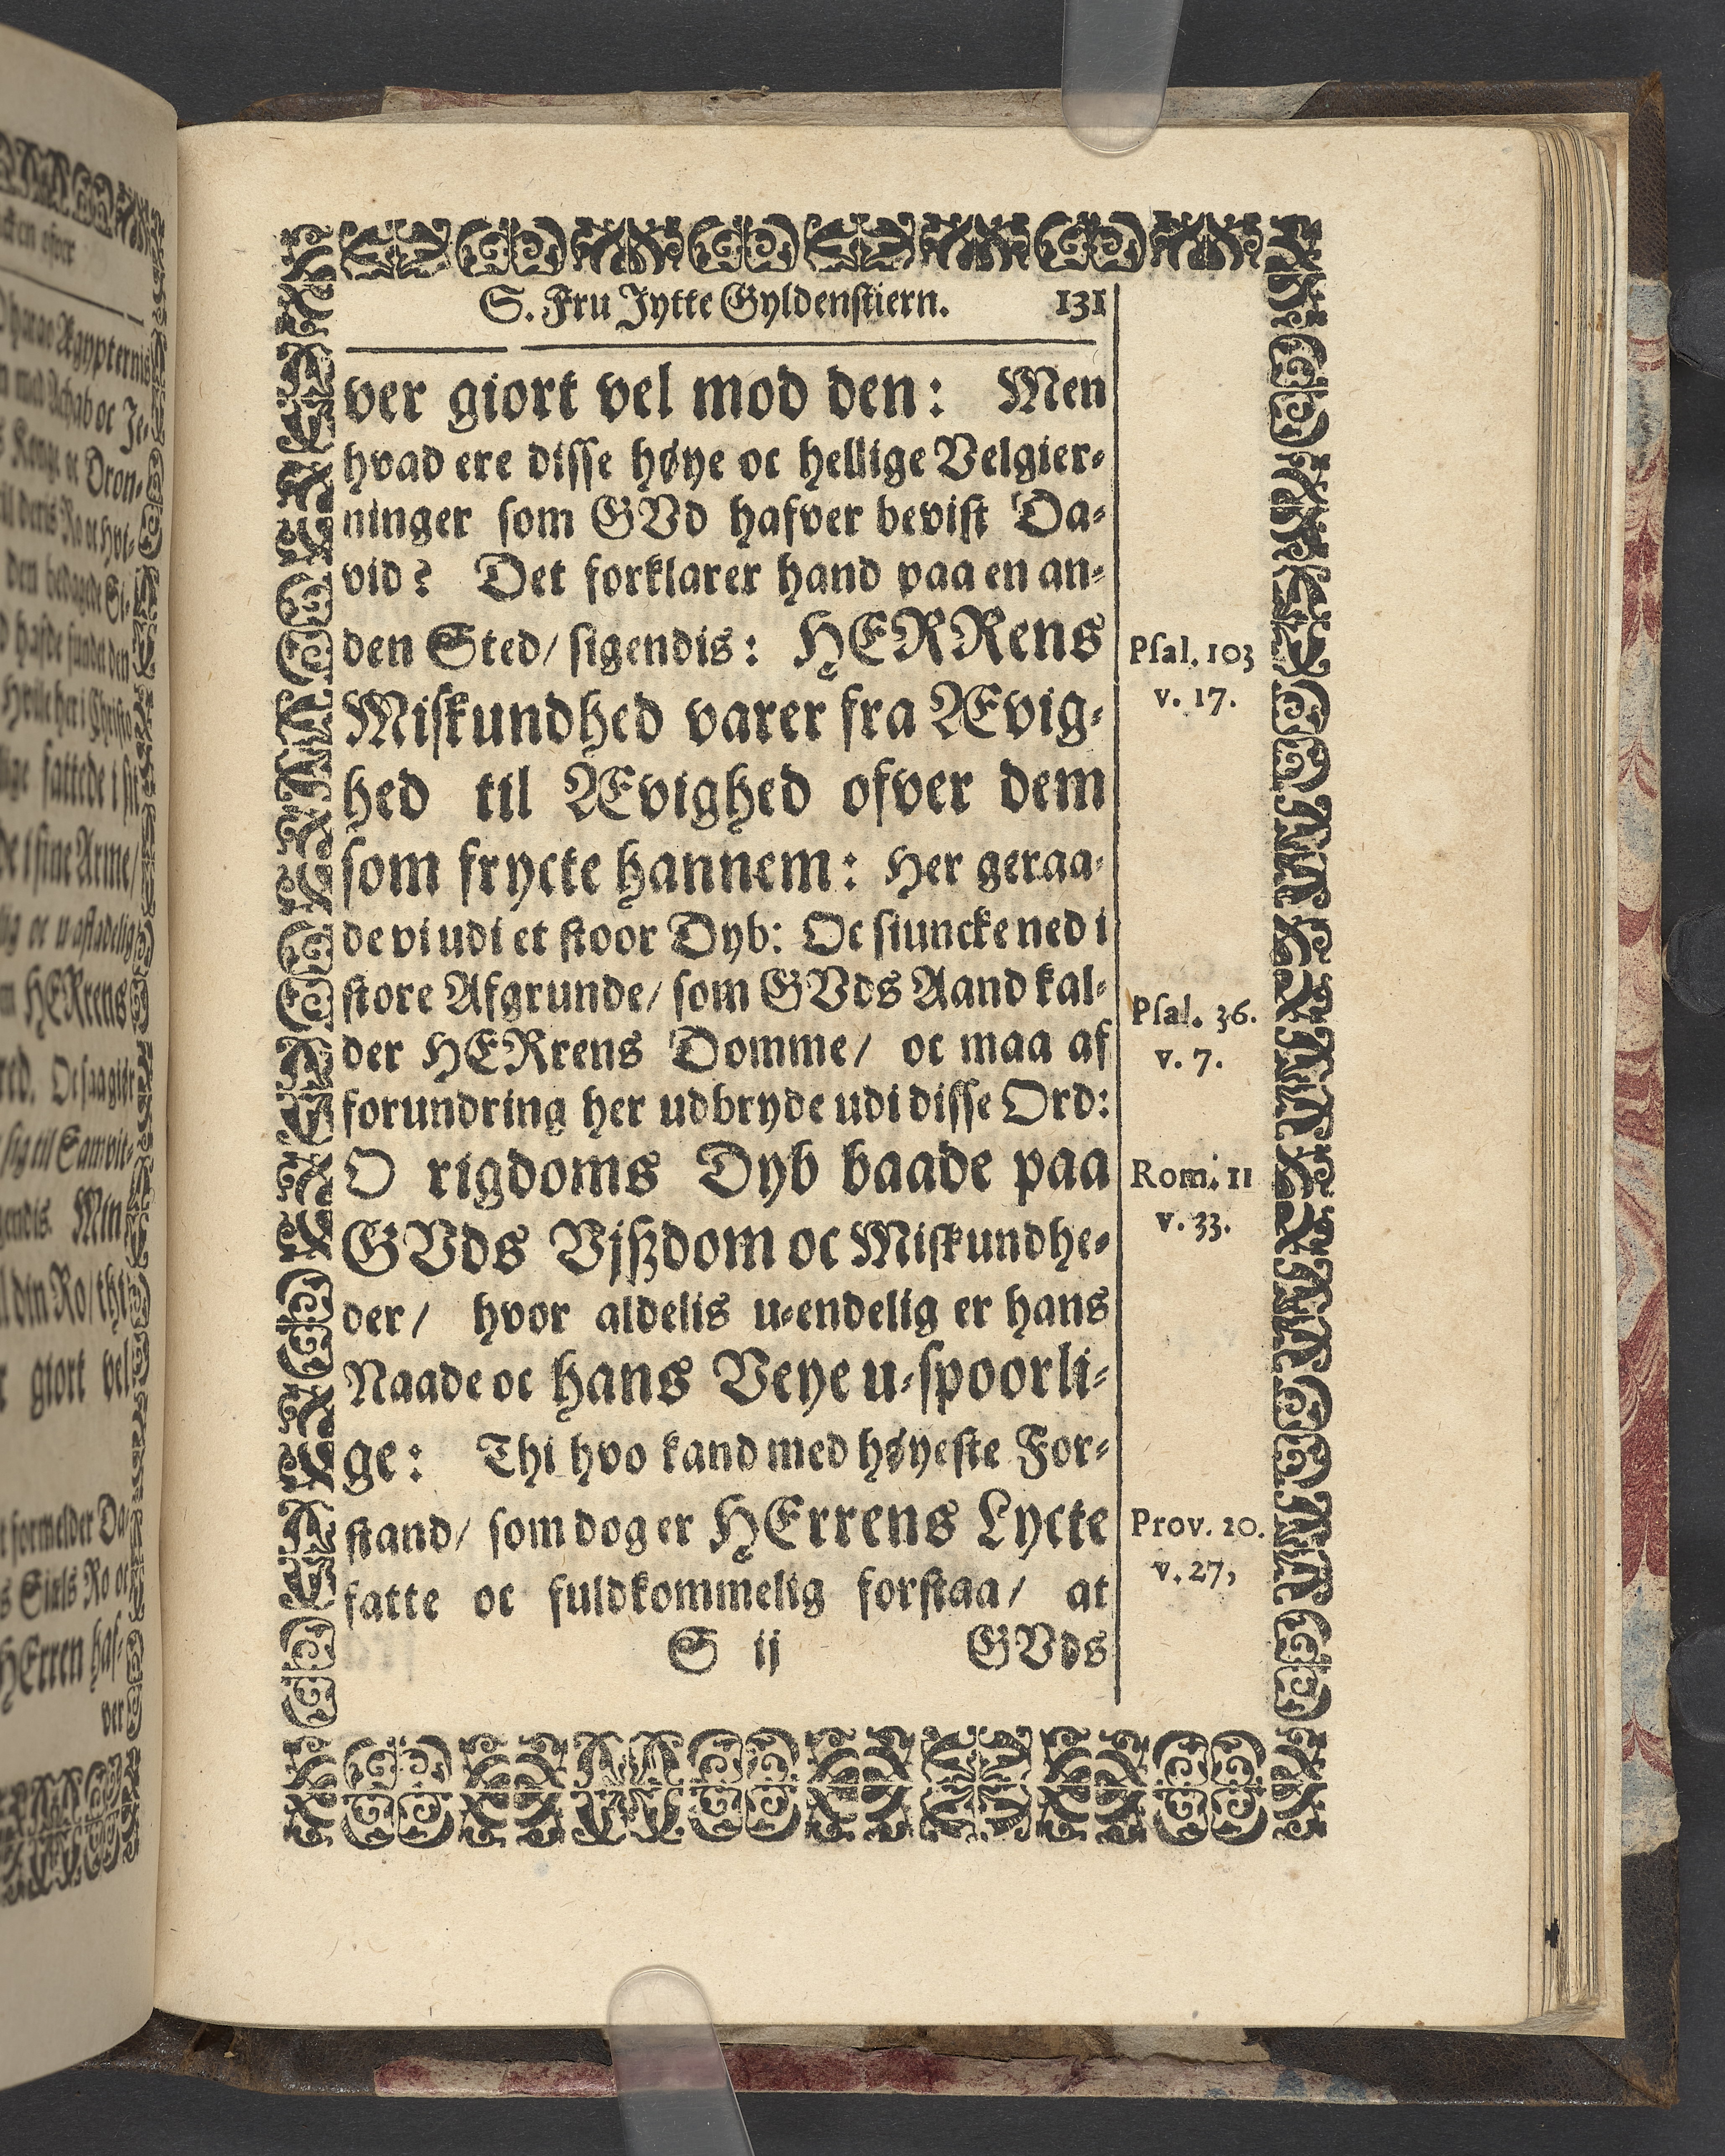 S. Fru Jytte Gyldenstiern. 131
ver giort vel mod den: Men
hvad ere disse høye oc hellige Velgier-
ninger som GVd hafver bevist Da-
vid? Det forklarer hand paa en an-
den Sted/ sigendis: HERRens
Psal. 103
v. 17.
Miskundhed varer fra Ævig-
hed til Ævighed ofver dem
som frycte hannem: Her geraa-
de vi udi et stoor Dyb: Oc siuncke ned i
store Afgrunde/ som GVds Aand kal-
Psal. 36.
v. 7.
der HERrens Domme/ oc maa af
forundring her udbryde udi disse Ord:
O rigdoms Dyb baade paa
Rom. 11
v. 33.
GVds Vjszdom oc Miskundhe-
der/ hvor aldelis u-endelig er hans
Naade oc hans Veye u-spoorli-
ge: Thi hvo kand med høyeste For-
stand/ som dog er HErrens Lycte
Prov. 20.
v. 27,
fatte oc fuldkommelig forstaa/ at
S ij GVds